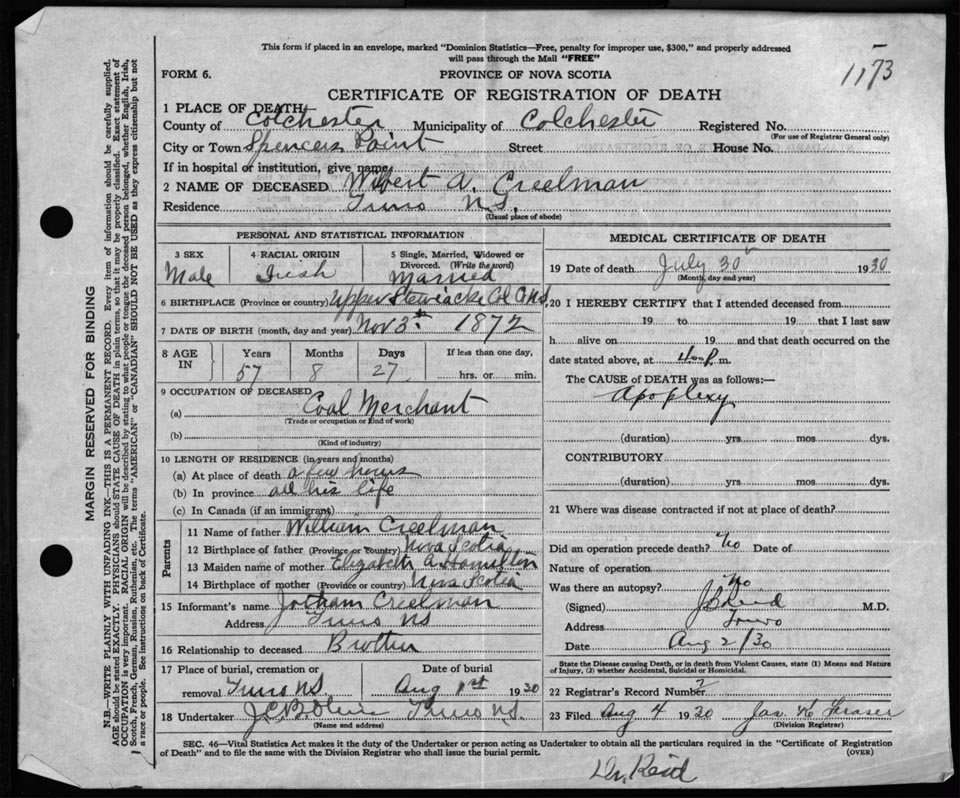 This form if placed in an envelope, marked "Dominion Statistics—Free, penalty for improper use, $300," and properly addressed
will pass through the Mail "FREE"
1173
FORM 6. PROVINCE OF NOVA SCOTIA
CERTIFICATE OF REGISTRATION OF DEATH
1 PLACE OF DEATH
County of Colchester Municipality of Colchester Registered No.
(For use of Registrar General only)
City or Town Spencers Point Street House No.
If in hospital or institution, give name
2 NAME OF DECEASED Wilbert A. Creelman
Residence Truro N.S.
(Usual place of abode)
PERSONAL AND STATISTICAL INFORMATION
3 SEX 4 RACIAL ORIGIN 5 Single, Married, Widowed or
Divorced. (Write the word)
Male Irish Married
6 BIRTHPLACE (Province or country) Upper Stewiacke Col Co NS.
7 DATE OF BIRTH (month, day and year) Nov 3rd 1872
8 AGE IN Years Months Days If less than one day,
57 8 27 hrs. or min.
9 OCCUPATION OF DECEASED
(a) Coal Merchant
(Trade or occupation or kind of work)
(b)
(Kind of industry)
10 LENGTH OF RESIDENCE (in years and months)
(a) At place of death a few hours
(b) In province all his life
(c) In Canada (if an immigrant)
Parents
11 Name of father William Creelman
12 Birthplace of father (Province or country) Nova Scotia
13 Maiden name of mother Elizabeth A. Hamilton
14 Birthplace of mother (Province or country) Nova Scotia
15 Informant's name Jotham Creelman
Address Truro NS
16 Relationship to deceased Brother
17 Place of burial, cremation or Date of burial
removal Truro N.S. Aug 1st 1930
18 Undertaker J.C.B. Truro N.S.
(Name and address)
MEDICAL CERTIFICATE OF DEATH
19 Date of death July 30 1930
(Month, day and year)
20 I HEREBY CERTIFY that I attended deceased from
19 to 19 that I last saw
h alive on 19 and that death occurred on the
date stated above, at 4.00 P. m.
The CAUSE of DEATH was as follows:—
Apoplexy
(duration) yrs. mos dys.
CONTRIBUTORY
(duration) yrs. mos dys.
21 Where was disease contracted if not at place of death?
Did an operation precede death? No Date of
Nature of operation
Was there an autopsy? No
(Signed) Reid M.D.
Address Truro
Date Aug 2/30
State the Disease causing Death, or in death from Violent Causes, state (1) Means and Nature
of Injury, (2) whether Accidental, Suicidal or Homicidal.
22 Registrar's Record Number 2
23 Filed Aug 4 1930 Jas. Fraser
(Division Registrar)
SEC. 46—Vital Statistics Act makes it the duty of the Undertaker or person acting as Undertaker to obtain all the particulars required in the "Certificate of Registration
of Death" and to file the same with the Division Registrar who shall issue the burial permit. (OVER)
Dr. Reid
MARGIN RESERVED FOR BINDING
N.B.—WRITE PLAINLY WITH UNFADING INK—THIS IS A PERMANENT RECORD. Every item of information should be carefully supplied.
AGE should be stated EXACTLY. PHYSICIANS should STATE CAUSE OF DEATH in plain terms, so that it may be properly classified. Exact statement of
OCCUPATION is very important. RACIAL ORIGIN will be described by stating to what people or tongue the deceased person belonged, whether English, Irish,
Scotch, French, German, Russian, Ruthenian, etc. The terms "AMERICAN" or "CANADIAN" SHOULD NOT BE USED as they express citizenship but not
a race or people. See instructions on back of Certificate.